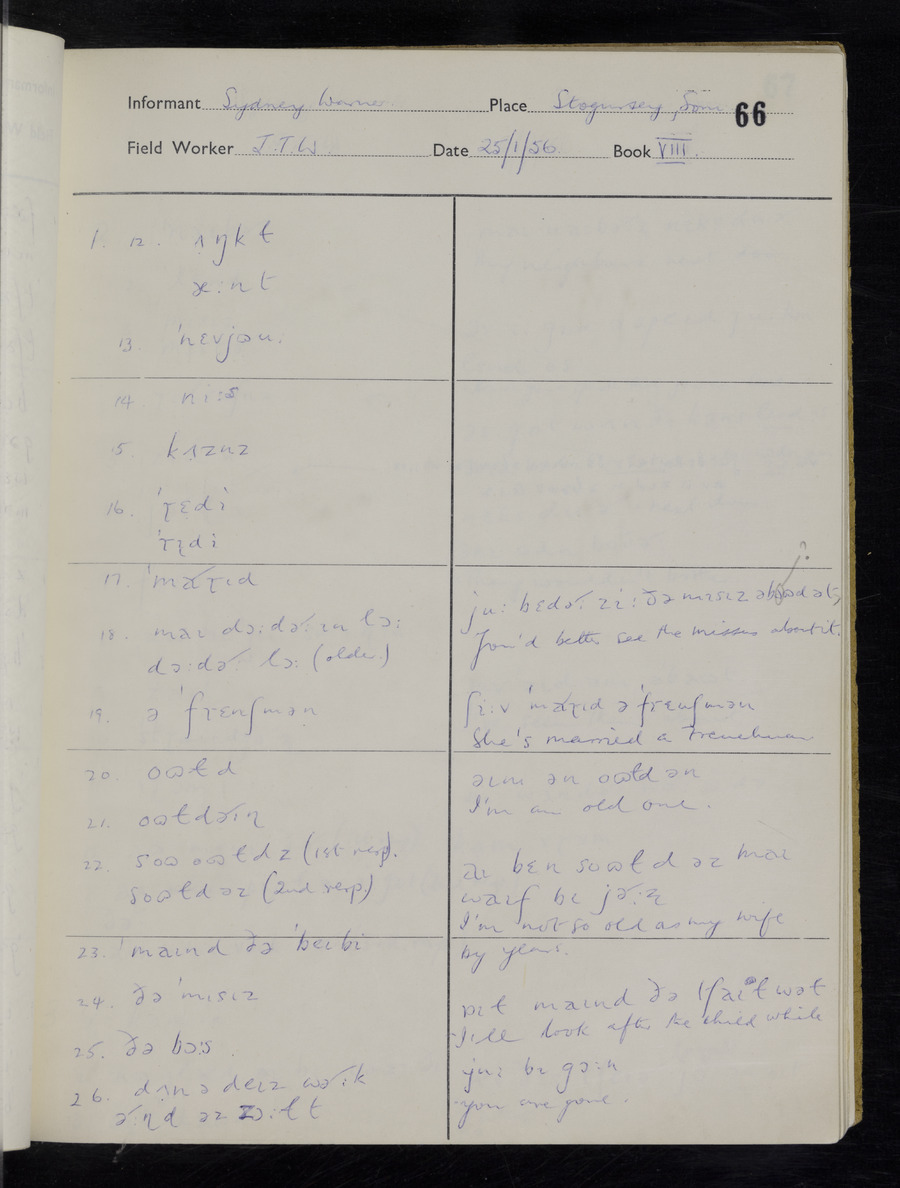 Informant Sydney Warner Place Stogursey, Som. 66
Field Worker J.T.W. Date 25/1/56 Book VIII.
1. 12. ʌŋkɫ
æ:nt
13. ˈnɛvjəu:
14 ni:s
15. kʌznz
16. ˈtɛdi
ˈtɪdi
17. ˈmaɽɪd
18. mai dɔ:dəʳ: ɪn lɔ:
dɔ:dəʳ: lɔ: (older)
19. ə ˈfɽɛnʃmən
20. oɷɫd
21. oɷɫdəʳɪŋ
22. soɷ oɷɫd z (1st resp).
soɷɫd əz (2nd resp)
23. ˈmaɪnd ðə ˈbeɪbi
24. ðə ˈmɪsɪz
25. ðə bɔ:s
26. dʌn ə deɪz wəʳ:k
ju: bɛdəʳ: zi: ðə mɪsɪz
You'd better see the missus about it.
ʃi:v ˈmaɽɪd ə ˈfrɛnʃmən
She's married a Frenchman
əɪm ən oɷɫd ən
I'm an old one.
soɷɫd əz mai
waɪf bɪ jəʳ:z
I'm not so old as my wife
by years.
maɪnd ðə tʃaɪɫ wət
I'll look after the child while
ju: bɪ gɔ:n
you are gone.